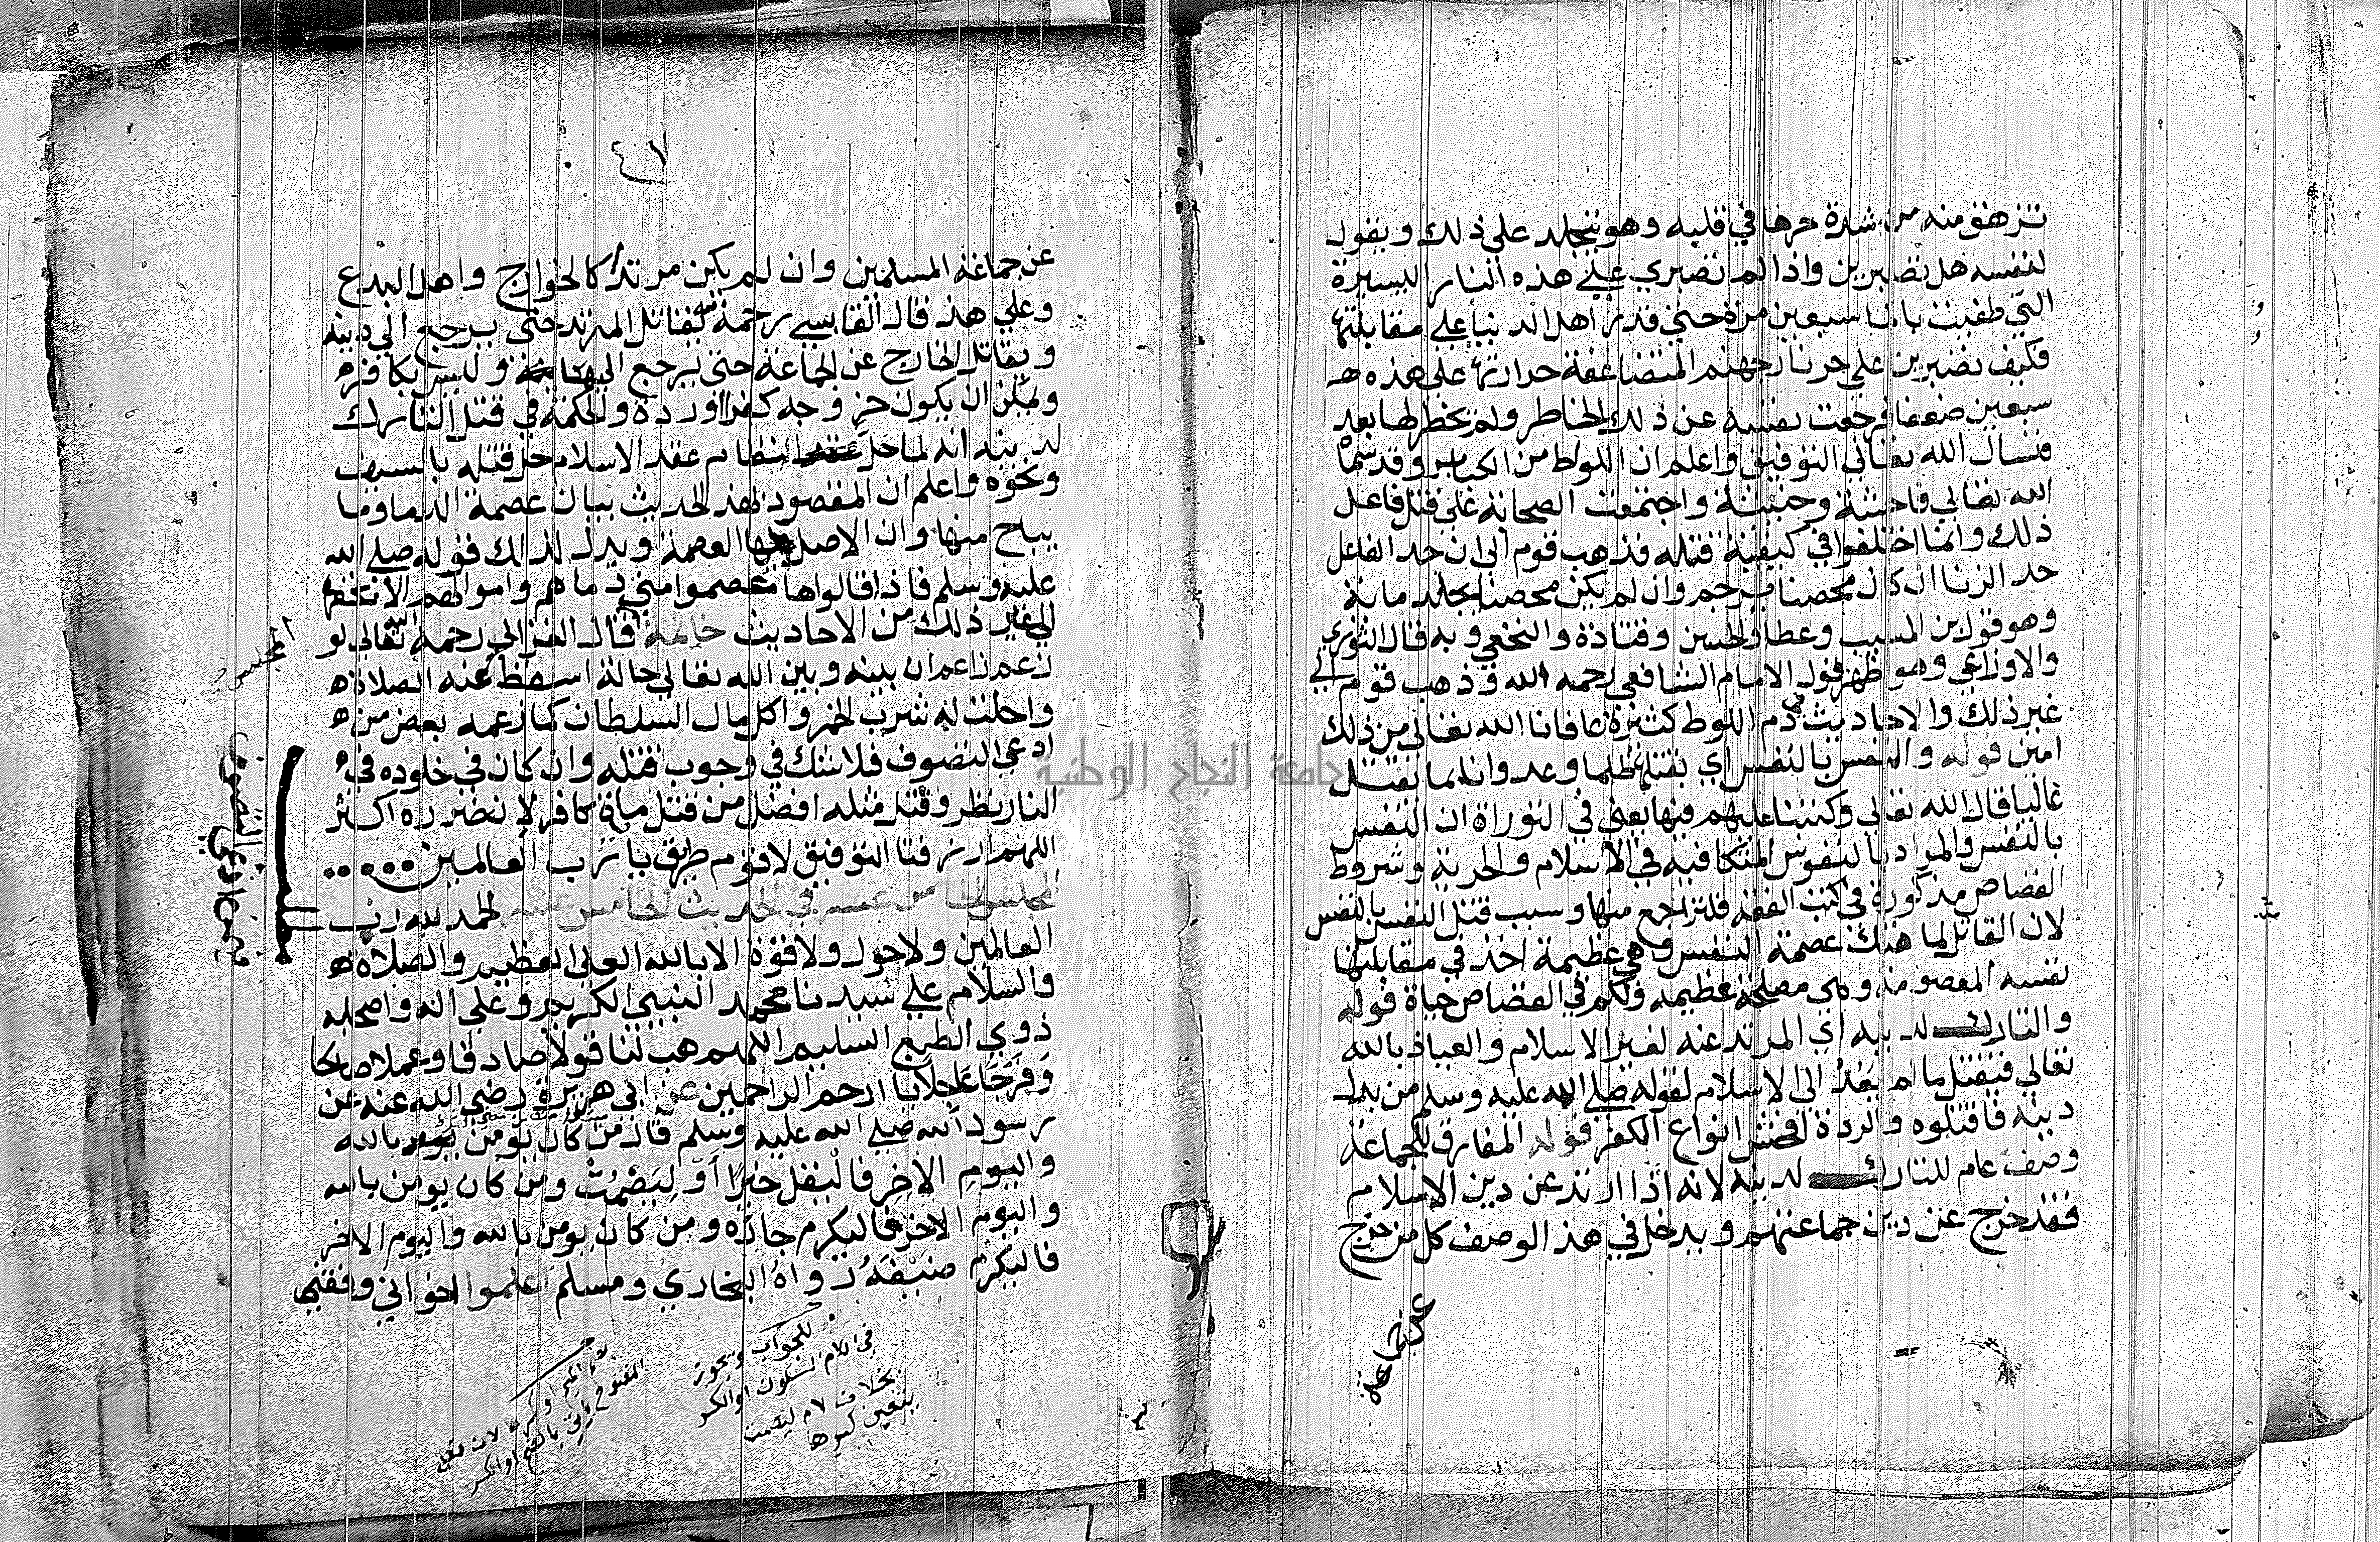 تزهق منه من شدة حرها في قلبه وهو يتجلد علي ذلك ويقول
لنفسه هل تصبرين واذا لم تصبري علي هذه النار اليسيرة
التي طفيت بالما سبعين مرة حتي قدر اهل الدنيا علي مقابلتها
فكيف تصبرين علي حر نار جهنم المتضاعفة حرارتها علي هذه
سبعين ضعفا فرجعت نفسه عن ذلك الخاطر ولم يخطر لها بعد
فنسال الله تعالي التوفيق واعلم ان اللواط من الكبائر وقد سماه
الله تعالي فاحشة وخبيثة واجتمعت الصحابة علي قتل فاعل
ذلك وانما اختلفوا في كيفية قتله فذهب قوم الي ان حد الفاعل
حد الزنا ان كان محصنا يرجم وان لم يكن محصنا يجلد ماية
وهو قول بن المسيب وعطا والحسن وقتادة والنخعي وبه قال الثوري
والاوزاعي وهو اظهر قول الامام الشافعي رحمه الله وذهب قوم الي
غير ذلك والاحاديث في ذم اللوط كثيرة عافانا الله تعالي من ذلك
امين قوله والنفس بالنفس اي بقتلها ظلما وعدوانا بما يقتل
غالبا قال الله تعالي وكتبنا عليهم فيها يعني في التوراة ان النفس
بالنفس والمراد بالنفوس المتكافيه في الاسلام والحرية وشروط
القصاص مذكورة في كتب الفقه فلتراجع منها وسبب قتل النفس بالنفس
لان القاتل لما هتك عصمة النفس وهي عظيمة اخذ في مقابلتها
نفسه المعصومة وهي مصلحة عظيمه ولكم في القصاص حياة قوله
والتارك لدينه اي المرتد عنه لغير الاسلام والعياذ بالله
تعالي فيقتل ما لم يَعُدْ الي الاسلام لقوله صلي الله عليه وسلم من بدل
دينه فاقتلوه والردة افحش انواع الكفر قوله المفارق للجماعة
وصف عام للتارك لدينه لانه اذا ارتد عن دين الاسلام
فقد خرج عن دين جماعتهم ويدخل في هذا الوصف كل من خرج
عن جماعة
٤١
عن جماعة المسلمين وان لم يكن مرتدا كالخوارج واهل البدع
وعلي هذ قال القابسي رحمه الله يقاتل المرتد حتى يرجع الي دينه
ويقاتل الخارج عن الجماعة حتى يرجع اليها وليس بكافر
ويمكن ان يكون خروجه كفرا وردة والحكمة في قتل التارك
لدينه انه لما حل نظام عقد الاسلام حل قتله بالسيف
ونحوه واعلم ان المقصود بهذ الحديث بيان عصمة الدما وما
يباح منها وان الاصل فيها العصمة ويدل لذلك قوله صلي الله
عليه وسلم فاذا قالوها عصموا مني دماهم واموالهم الا بحقها
الي غير ذلك من الاحاديث خاتمة قال الغزالي رحمه الله تعالي لو
زعم زاعم ان بينه وبين الله تعالي حالة اسقطت عنه الصلاة
واحلت له شرب الخمر واكل مال السلطان كما زعمه بعض من
ادعي التصوف فلا شك في وجوب قتله وان كان في خلوده في
النار نظر وقتل مثله افضل من قتل ماية كافر لان ضرره اكثر
اللهم ارزقنا التوفيق لاقوم طريق يا رب العالمين
المجلس الخامس عشر في الحديث الخامس عشر الحمد لله رب
العالمين ولا حول ولا قوة الا بالله العلي العظيم والصلاة
والسلام علي سيدنا محمد النبي الكريم وعلي اله واصحابه
ذوي الطبع السليم اللهم هب لنا قولا صادقا وعملا صالحا
وَفَرَجًا عَاجلا يا ارحم الراحمين عن ابي هريرة رضي الله عنه عن
رسول الله صلي الله عليه وسلم قال من كان يؤمن بالله
واليوم الاخِر فالْيَقل خيرًا أوْ لِيَصْمُتْ ومن كان يومن بالله
واليوم الاخر فاليكرم جاره ومن كان يومن بالله واليوم الاخر
فاليكرم ضَيْفهُ رواهُ البخاري ومسلم اعلموا اخواني وفقني
المجلس
من ادعي التصوف
للجواب ويجوز
في اللام السكون او الكسر
بخلاف لام ليصمت
يتعين كسرها